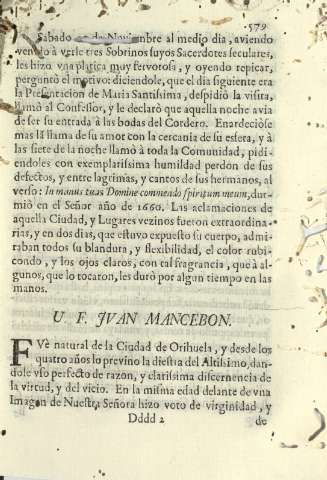 579
Sabado de Noviembre al medio dia, aviendo
venido à verle tres Sobrinos suyos Sacerdotes seculares,
les hizo vna platica muy fervorosa, y oyendo repicar,
perguntò el motivo: diciendole, que el dia siguiente era
la Presentacion de Maria Santissima, despidiò la visita,
llamò al Confessor, y le declarò que aquella noche avia
de ser su entrada à las bodas del Cordero. Enardeciòse
mas la llama de su amor con la cercania de su esfera, y à
las siete de la noche llamò à toda la Comunidad, pidi-
endoles con exemplarissima humildad perdon de sus
defectos, y entre lagrimas, y cantos de sus hermanos, al
verso: In manus tuas Domine commendo spiritum meum, dur-
miò en el Señor año de 1660. Las aclamaciones de
aquella Ciudad, y Lugares vezinos fueron extraordina-
rias, y en dos dias, que estuvo expuesto su cuerpo, admi-
raban todos su blandura, y flexibilidad, el color rubi-
condo, y los ojos claros, con tal fragrancia, que à al-
gunos, que lo tocaron, les durò por algun tiempo en las
manos.
U. F. JVAN MANCEBON.
FVè natural de la Ciudad de Orihuela, y desde los
quatro años lo previno la diestra del Altissimo, dan-
dole vso perfecto de razon, y clarissima discernencia de
la virtud, y del vicio. En la misma edad delante de vna
Imagen de Nuestra Señora hizo voto de virginidad, y
Dddd 2 de